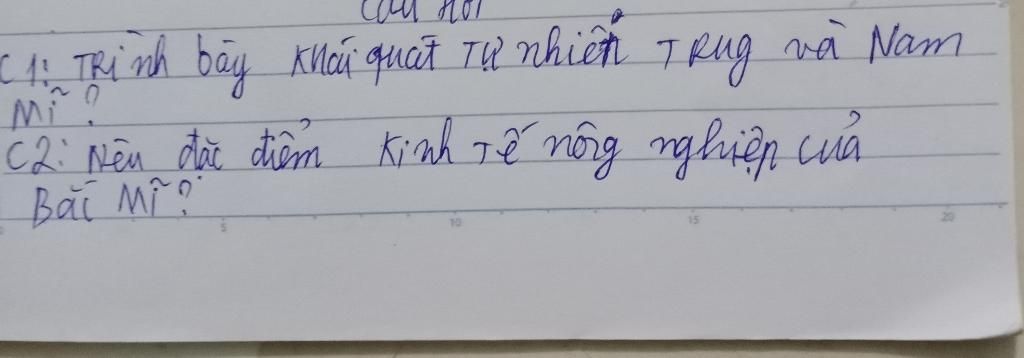 Câu hỏi
C1: TRình bày Khái quát Tự nhiên TRug và Nam
Mĩ?
C2: Nêu đặc điểm Kinh Tế nông nghiệp của
Bắc Mĩ?
5 10 15 20